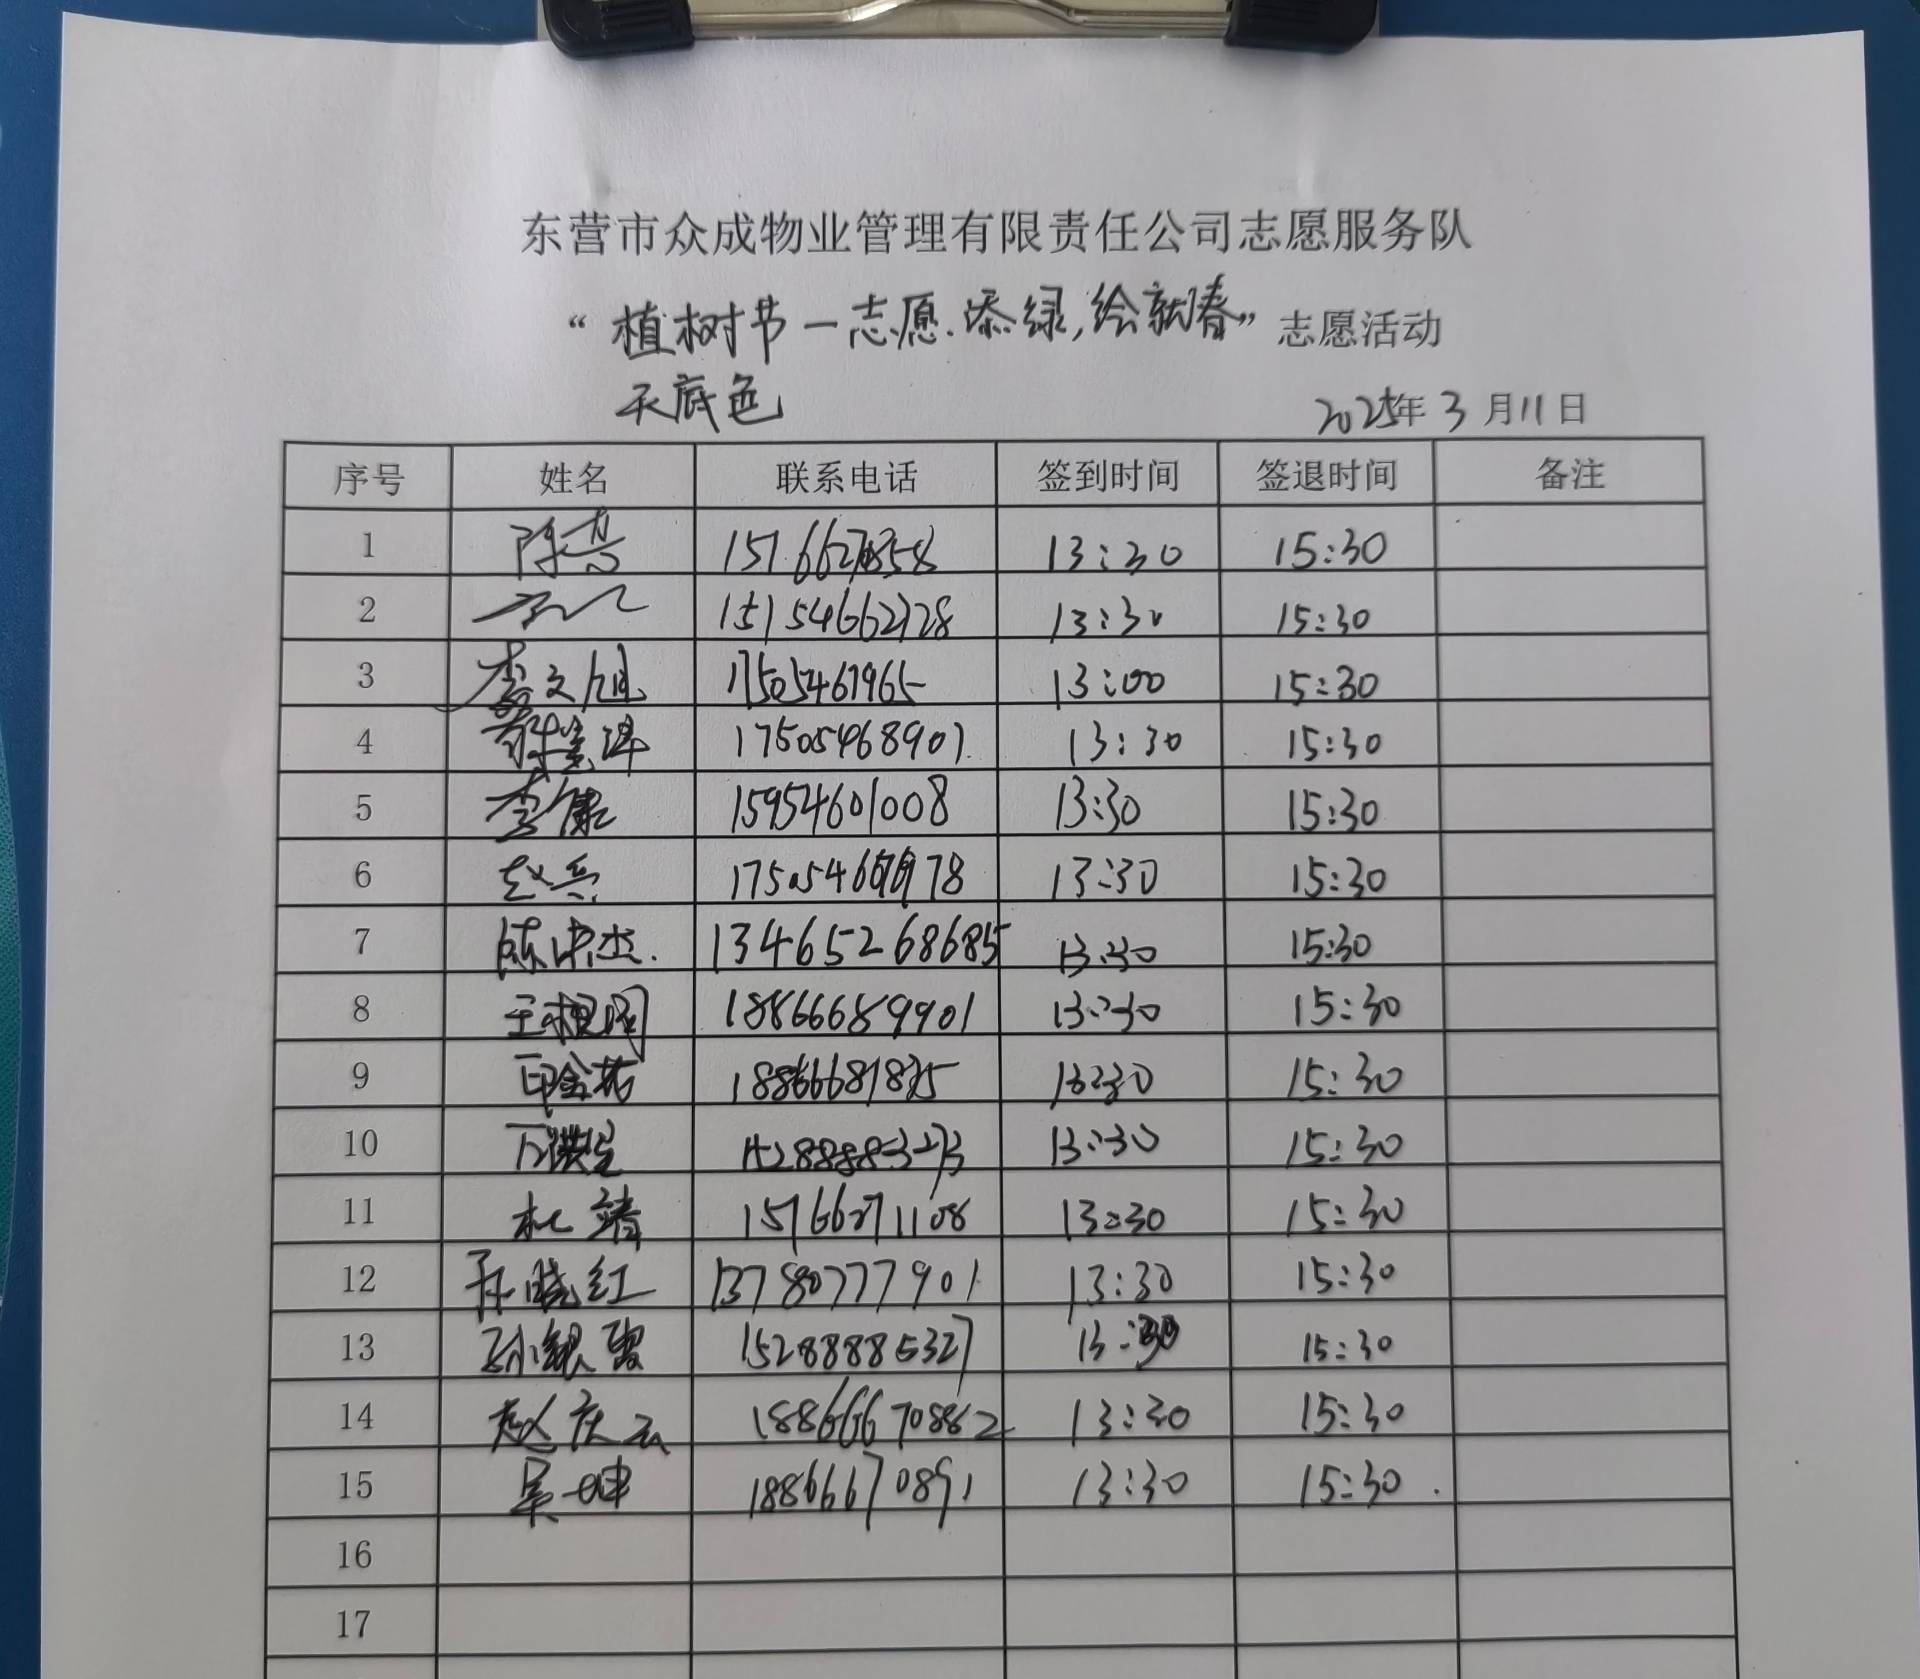 东营市众成物业管理有限责任公司志愿服务队
“植树节一志愿.添绿,绘就春”志愿活动
天底色
2025年3月11日
序号 姓名 联系电话 签到时间 签退时间 备注
1 陈 13:30 15:30
2 15154662728 13:30 15:30
3 李文旭 17505467965 13:00 15:30
4 薛 17505468901 13:30 15:30
5 李康 15954601008 13:30 15:30
6 赵兵 13:30 15:30
7 陈中杰 13465268685 13:30 15:30
8 王 18866689901 13:30 15:30
9 印金花 18866681835 13:30 15:30
10 13:30 15:30
11 杜靖 15166271108 13:30 15:30
12 孙晓红 13780777901 13:30 15:30
13 孙银 15288885327 13:30 15:30
14 赵庆云 18866670882 13:30 15:30
15 吴坤 18866670891 13:30 15:30
16
17